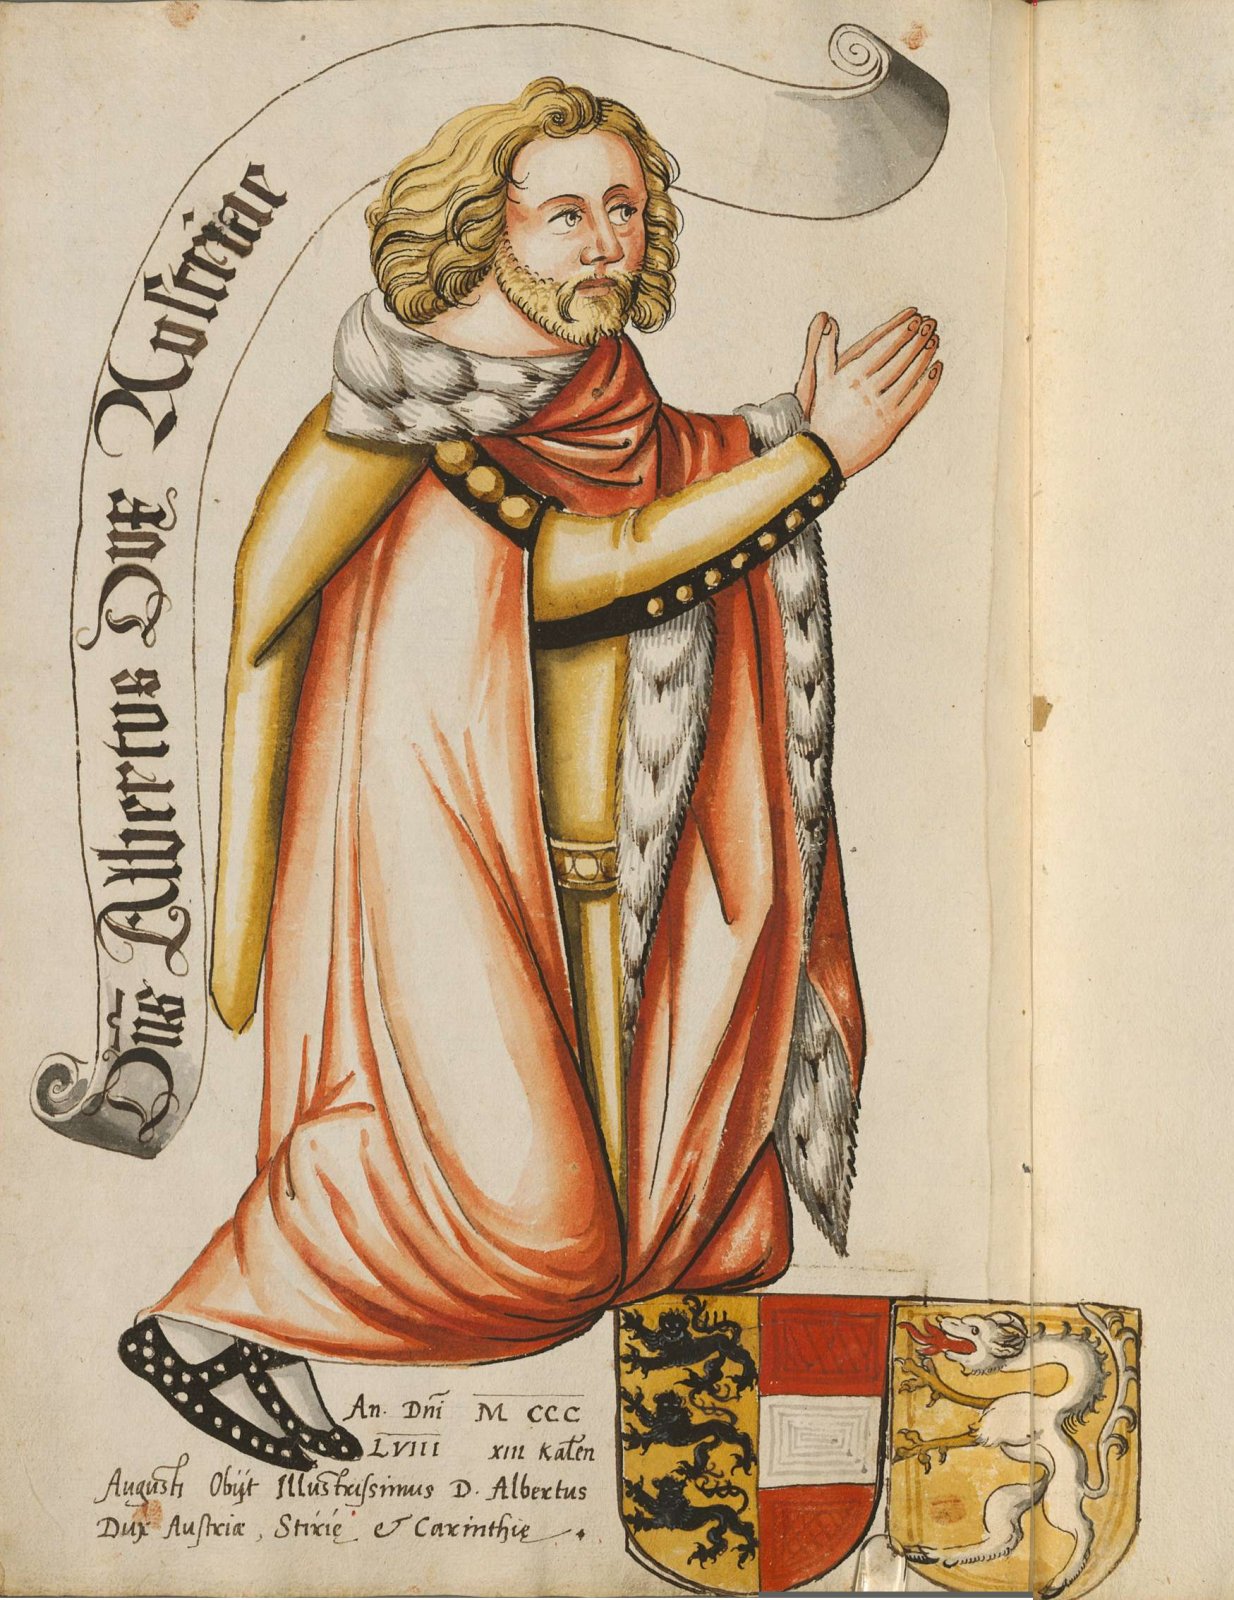 Dn̄s Albertus Dux Austriae
An. Dn̄i M CCC
LVIII XIII Kalen̄
Augusti Obijt Illustrissimus D. Albertus
Dux Austriæ, Stirię & Carinthię.